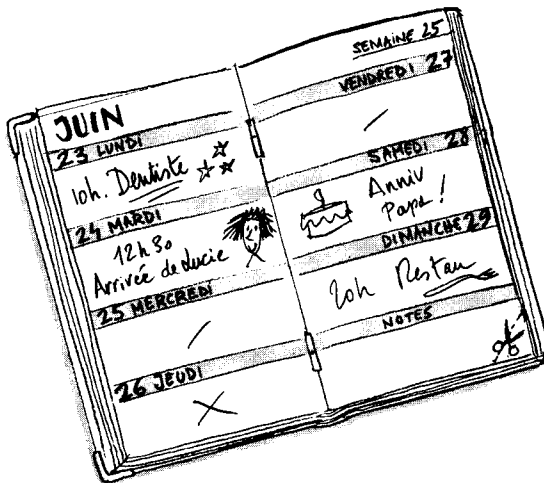 JUIN
23 LUNDI
10h. Dentiste
24 MARDI
12h30
Arrivée de Lucie
25 MERCREDI
26 JEUDI
SEMAINE 25
VENDREDI 27
SAMEDI 28
Anniv
Papa !
DIMANCHE 29
20h Restau
NOTES